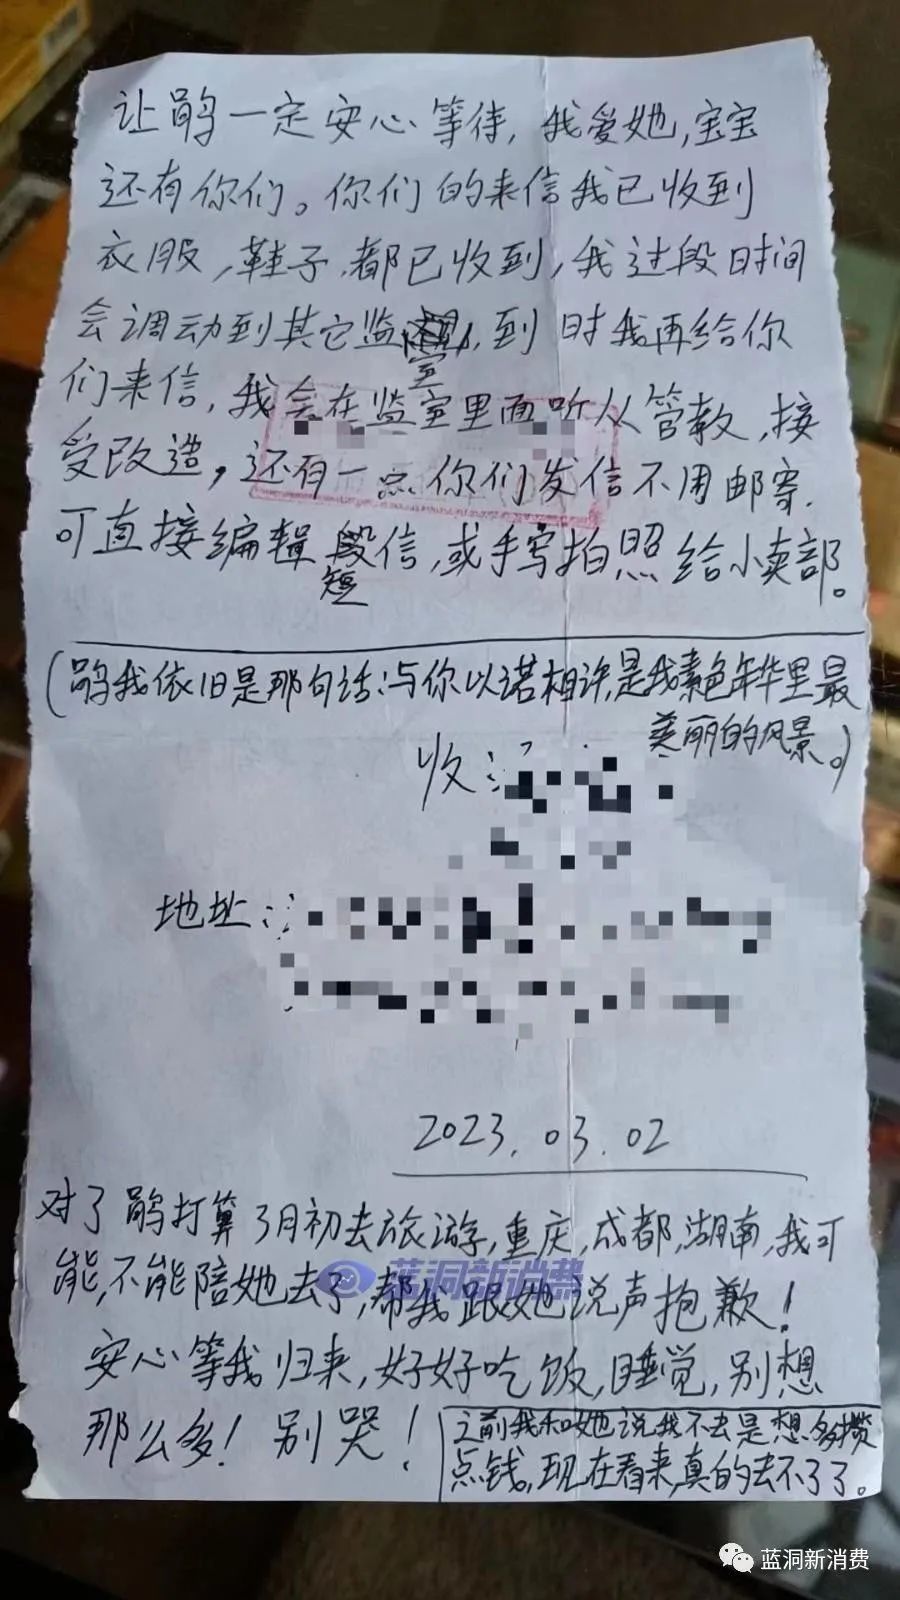 让鹃一定安心等待,我爱她,宝宝
还有你们。你们的来信我已收到
衣服,鞋子.都已收到,我过段时间
会调动到其它监室,到时我再给你
们来信,我会在监室里面听从管教,接
受改造,还有一点.你们发信不用邮寄.
可直接编辑短信,或手写拍照给小卖部。
(鹃我依旧是那句话:与你以诺相许,是我素色年华里最
美丽的风景。)
收:
地址:
2023.03.02
对了鹃打算3月初去旅游,重庆,成都,湖南,我可
能,不能陪她去了,帮我跟她说声抱歉!
安心等我归来,好好吃饭,睡觉,别想
那么多!别哭!
之前我和她说我不去是想多攒
点钱,现在看来,真的去不了了。
蓝洞新消费
蓝洞新消费